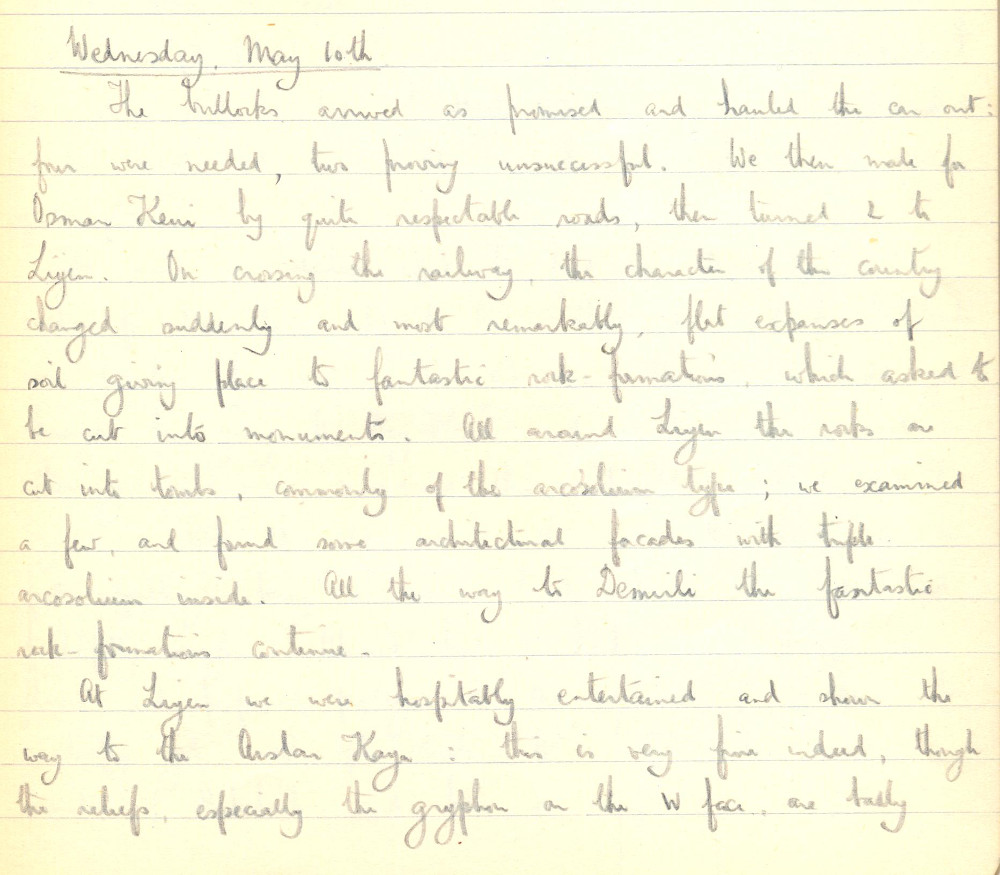 Wednesday. May 10th
The bullocks arrived as promised and hauled the car out:
four were needed, two proving unsuccessful. We then made for
Osman Keui by quite respectable roads, then turned L to
Liyen. On crossing the railway, the character of the country
changed suddenly and most remarkably, flat expanses of
soil giving place to fantastic rock-formations, which asked to
be cut into monuments. All around Liyen the rocks are
cut into tombs, commonly of the arcosolium type; we examined
a few, and found some architectural facades with triple
arcosolium inside. All the way to Demirli the fantastic
rock-formations continue.
At Liyen we were hospitably entertained and shown the
way to the Arslan Kaya: this is very fine indeed, though
the reliefs, especially the gryphon on the W face, are badly